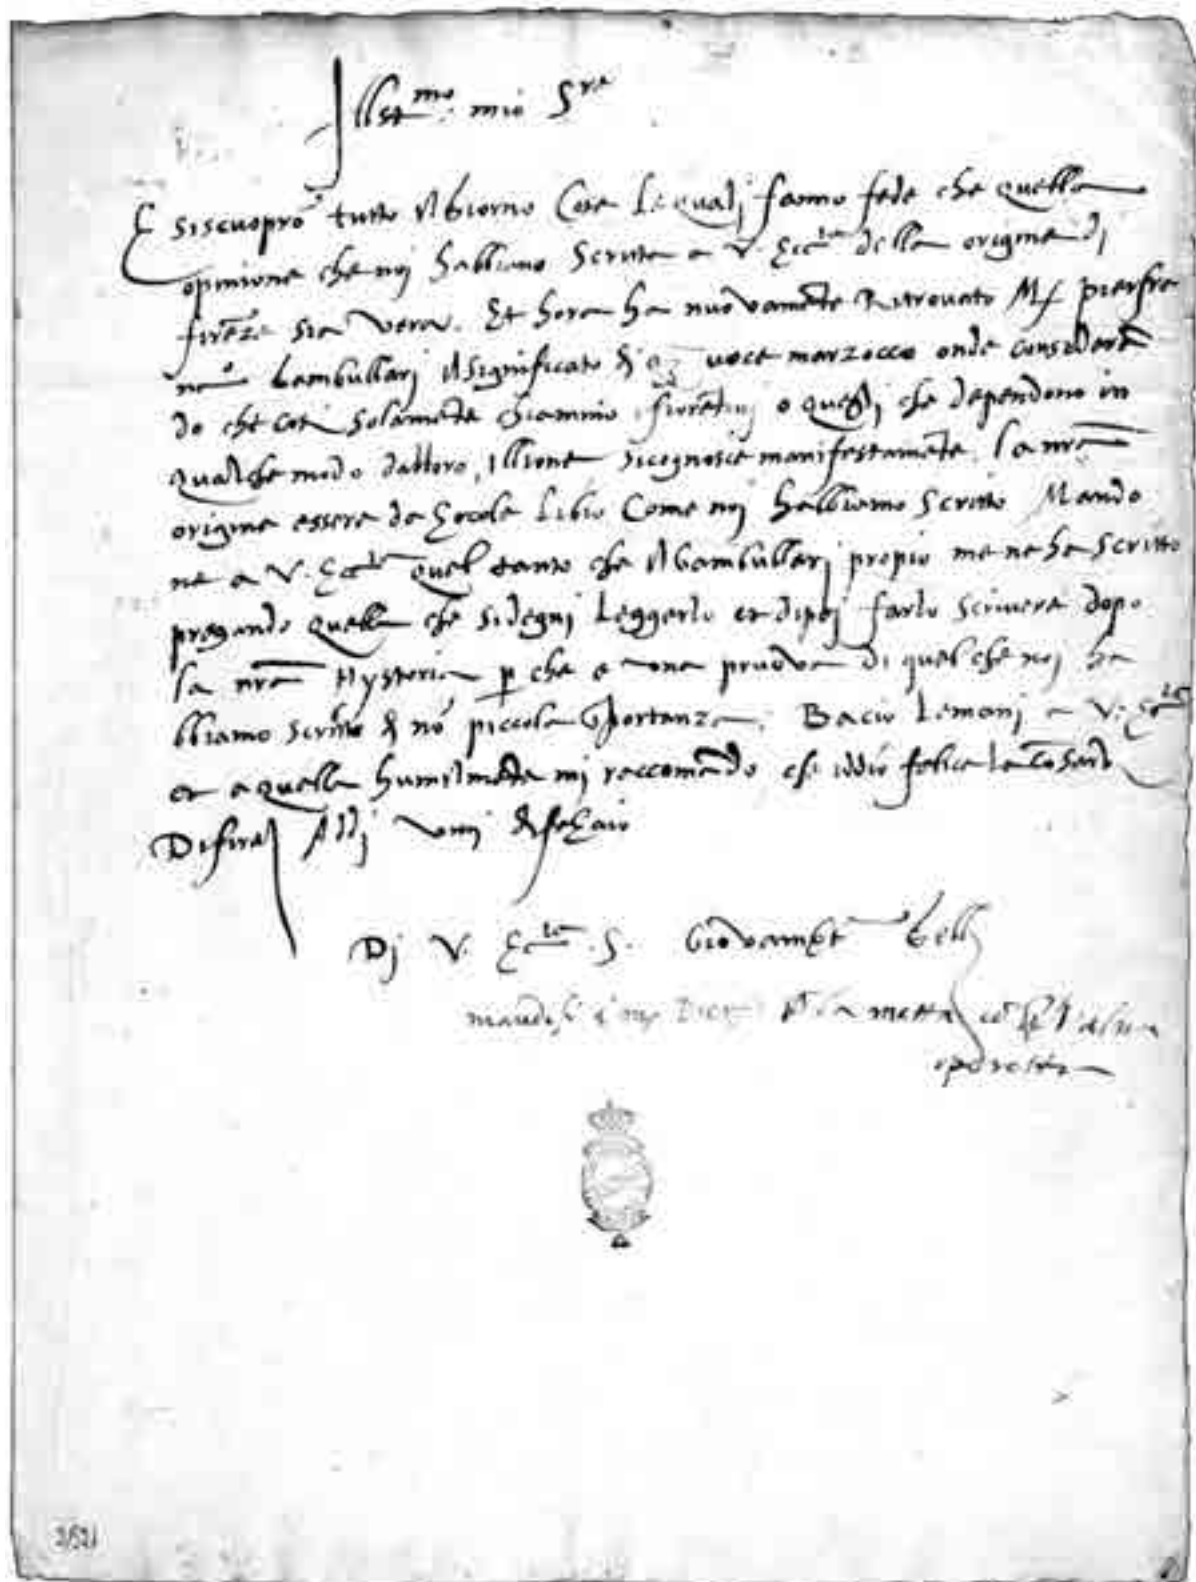 Illst.mo mio S.re
E siscuoprō tutto il Giorno Cose Lequalj fanno fede che quella
opinione che noj habbiamo Scritta a V. Ecc.tia della origine dj
firēze sia vera. Et hora ha nuovamēte Ritrovato M. pierfrā
ne.o Gambullarj il significato di voce marzocco onde considerā
do che cosi solamēte chiamino i fiorētinj o queglj che dependono in
qualche modo dalloro, illione sicognosce manifestamēte la nr̄a
origine essere da Hercole Libio Come noj habbiamo Scritto Mando
ne a V. Ecc.tia quel tanto che il Gambullarj propio me ne ha Scritto
pregando quella che si degnj Leggerlo et dipoj farlo scrivere dopo
la nr̄a Hystoria, p che e una pruova di quel che noj ha
bbiamo scritto di nō piccola Īportanza. Bacio Lemanj a V. Ecc.tia
et a quella humilmēte mi raccomādo che iddio felice la cōservi
Di fire Addj viiij di febraio
Dj V. Ecc.tia S. Giovambt.a Gellj
la metta